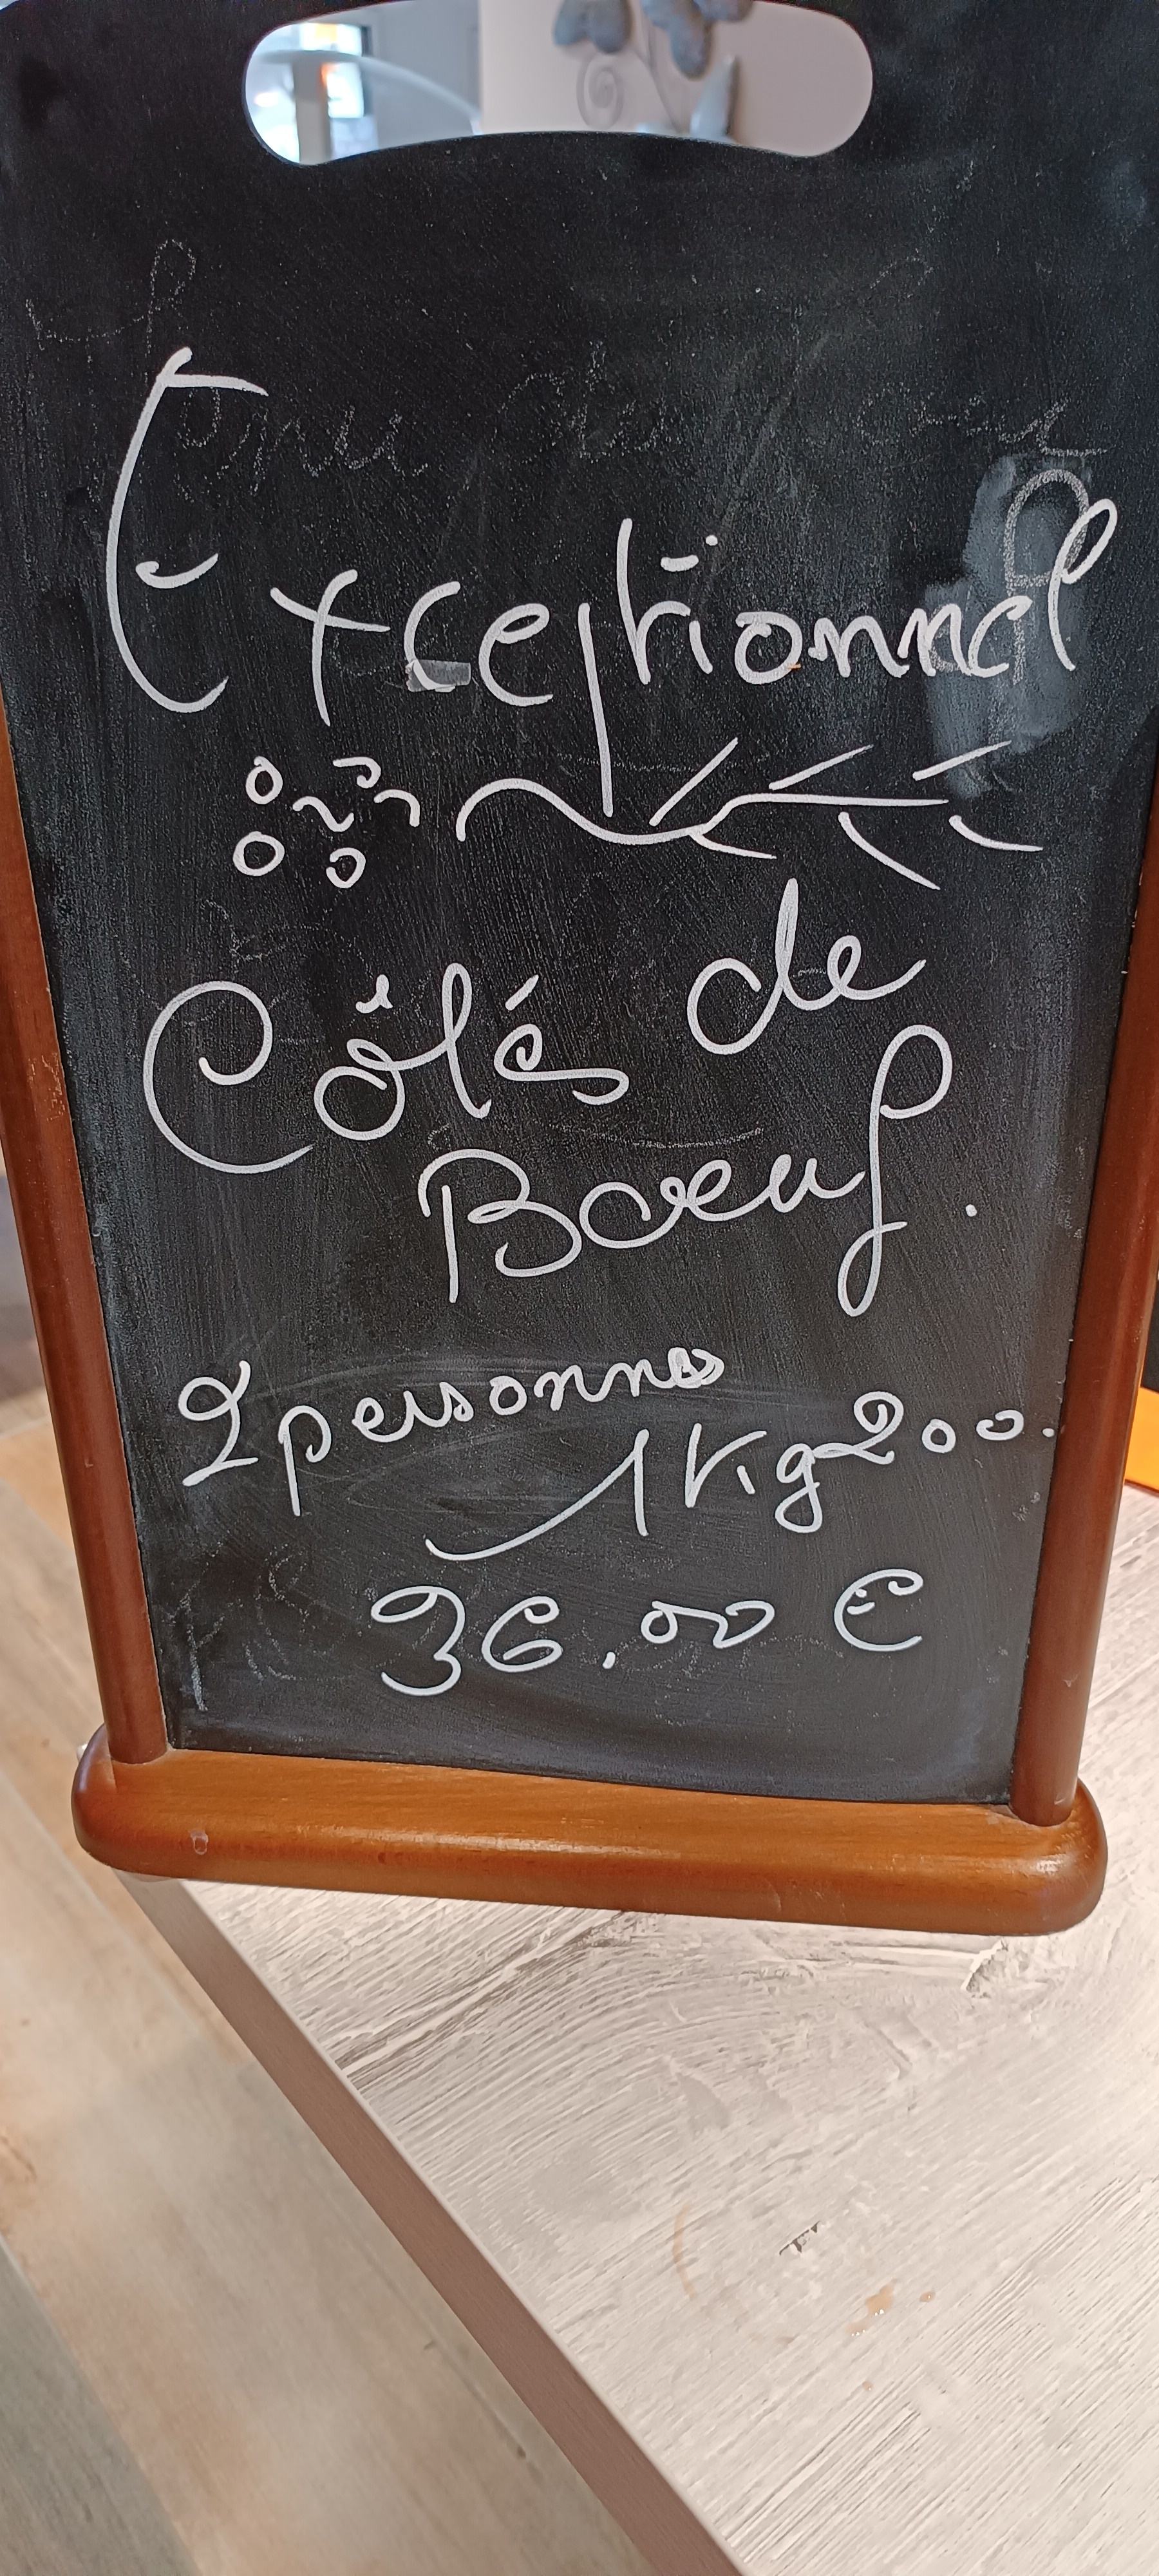 Exceptionnel
Côtés de
Boeuf.
2 personnes
1 Kg 200.
36.00 €